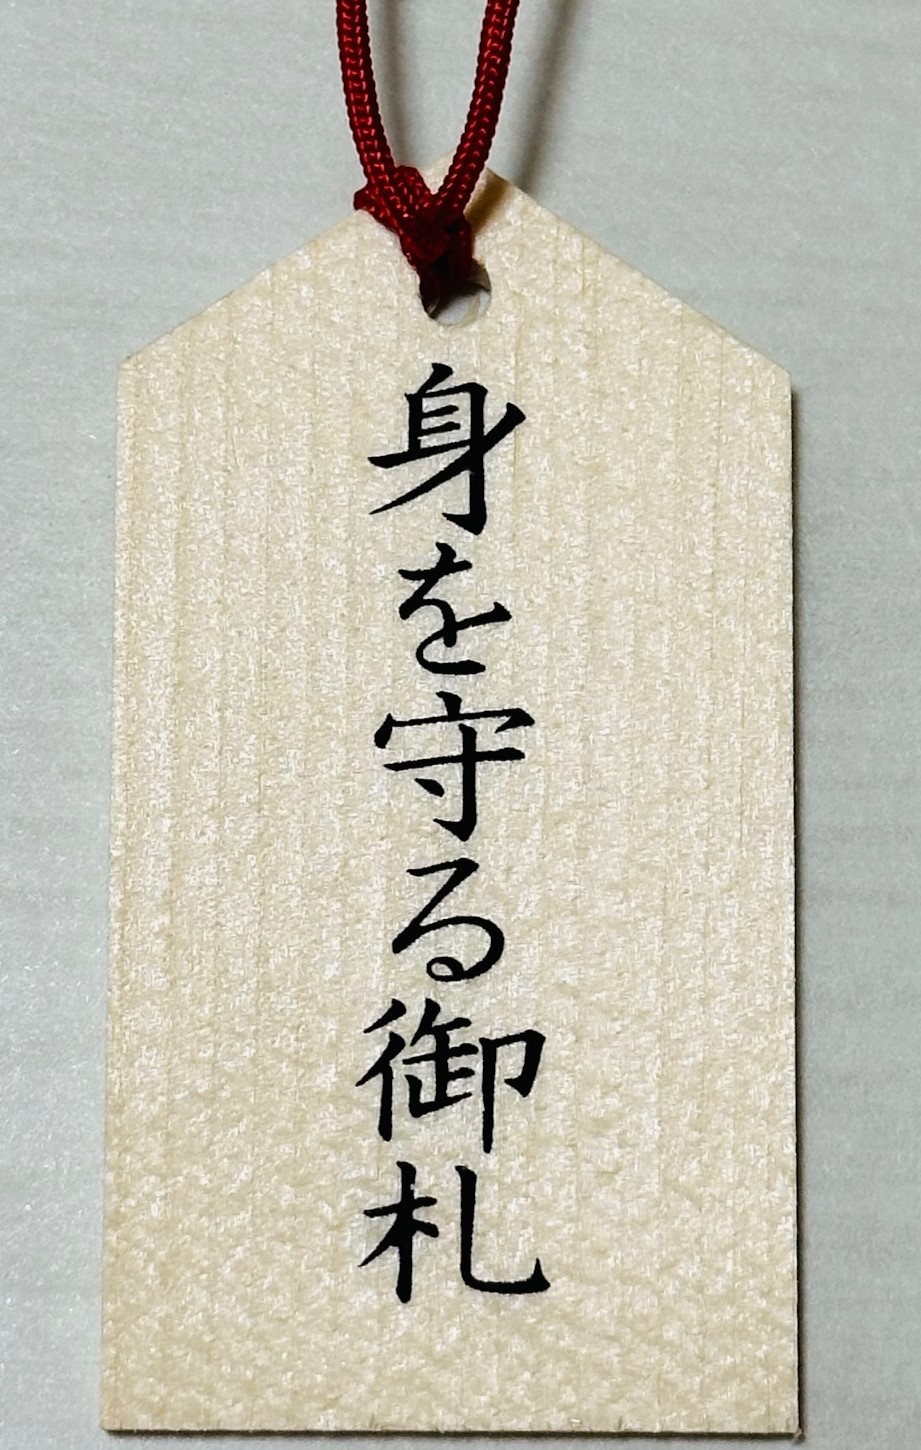 身を守る御札